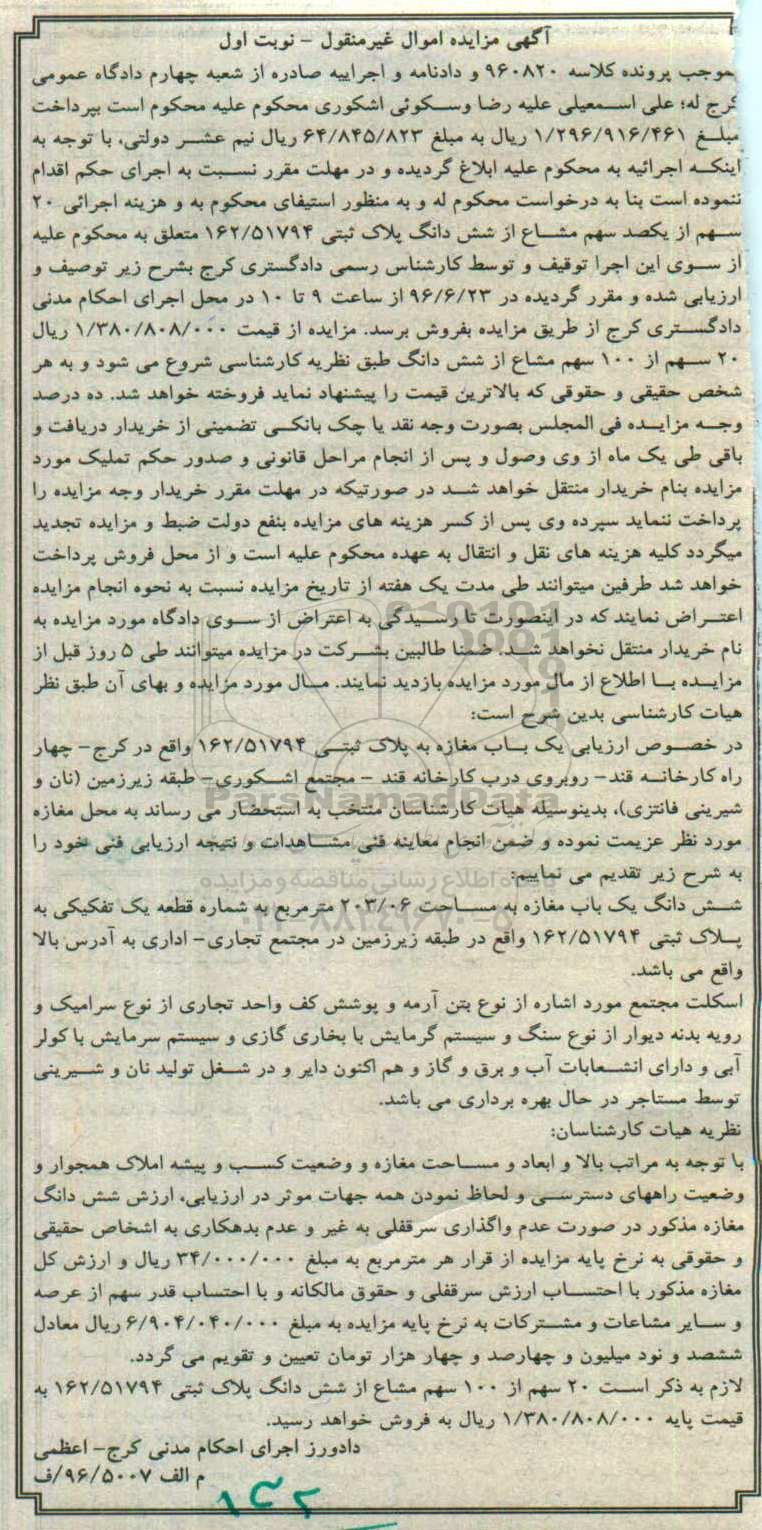 آگهی مزایده اموال غیرمنقول - نوبت اول
بموجب پرونده کلاسه ۹۶۰۸۲۰ و دادنامه و اجراییه صادره از شعبه چهارم دادگاه عمومی
کرج له؛ علی اسمعیلی علیه رضا وسکوئی اشکوری محکوم علیه محکوم است بپرداخت
مبلغ ۱/۲۹۶/۹۱۶/۴۶۱ ریال به مبلغ ۶۴/۸۴۵/۸۲۳ ریال نیم عشر دولتی، با توجه به
اینکه اجرائیه به محکوم علیه ابلاغ گردیده و در مهلت مقرر نسبت به اجرای حکم اقدام
ننموده است بنا به درخواست محکوم له و به منظور استیفای محکوم به و هزینه اجرائی ۲۰
سهم از یکصد سهم مشاع از شش دانگ پلاک ثبتی ۱۶۲/۵۱۷۹۴ متعلق به محکوم علیه
از سوی این اجرا توقیف و توسط کارشناس رسمی دادگستری کرج بشرح زیر توصیف و
ارزیابی شده و مقرر گردیده در ۹۶/۶/۲۳ از ساعت ۹ تا ۱۰ در محل اجرای احکام مدنی
دادگستری کرج از طریق مزایده بفروش برسد. مزایده از قیمت ۱/۳۸۰/۸۰۸/۰۰۰ ریال
۲۰ سهم از ۱۰۰ سهم مشاع از شش دانگ طبق نظریه کارشناسی شروع می شود و به هر
شخص حقیقی و حقوقی که بالاترین قیمت را پیشنهاد نماید فروخته خواهد شد. ده درصد
وجه مزایده فی المجلس بصورت وجه نقد یا چک بانکی تضمینی از خریدار دریافت و
باقی طی یک ماه از وی وصول و پس از انجام مراحل قانونی و صدور حکم تملیک مورد
مزایده بنام خریدار منتقل خواهد شد در صورتیکه در مهلت مقرر خریدار وجه مزایده را
پرداخت ننماید سپرده وی پس از کسر هزینه های مزایده بنفع دولت ضبط و مزایده تجدید
میگردد کلیه هزینه های نقل و انتقال به عهده محکوم علیه است و از محل فروش پرداخت
خواهد شد طرفین میتوانند طی مدت یک هفته از تاریخ مزایده نسبت به نحوه انجام مزایده
اعتراض نمایند که در اینصورت تا رسیدگی به اعتراض از سوی دادگاه مورد مزایده به
نام خریدار منتقل نخواهد شد. ضمنا طالبین بشرکت در مزایده میتوانند طی ۵ روز قبل از
مزایده با اطلاع از مال مورد مزایده بازدید نمایند. مال مورد مزایده و بهای آن طبق نظر
هیات کارشناسی بدین شرح است:
در خصوص ارزیابی یک باب مغازه به پلاک ثبتی ۱۶۲/۵۱۷۹۴ واقع در کرج- چهار
راه کارخانه قند- روبروی درب کارخانه قند - مجتمع اشکوری- طبقه زیرزمین (نان و
شیرینی فانتزی)، بدینوسیله هیات کارشناسان منتخب به استحضار می رساند به محل مغازه
مورد نظر عزیمت نموده و ضمن انجام معاینه فنی مشاهدات و نتیجه ارزیابی فنی خود را
به شرح زیر تقدیم می نماییم:
شش دانگ یک باب مغازه به مساحت ۲۰۳/۰۶ مترمربع به شماره قطعه یک تفکیکی به
پلاک ثبتی ۱۶۲/۵۱۷۹۴ واقع در طبقه زیرزمین در مجتمع تجاری- اداری به آدرس بالا
واقع می باشد.
اسکلت مجتمع مورد اشاره از نوع بتن آرمه و پوشش کف واحد تجاری از نوع سرامیک و
رویه بدنه دیوار از نوع سنگ و سیستم گرمایش با بخاری گازی و سیستم سرمایش با کولر
آبی و دارای انشعابات آب و برق و گاز و هم اکنون دایر و در شغل تولید نان و شیرینی
توسط مستاجر در حال بهره برداری می باشد.
نظریه هیات کارشناسان:
با توجه به مراتب بالا و ابعاد و مساحت مغازه و وضعیت کسب و پیشه املاک همجوار و
وضعیت راههای دسترسی و لحاظ نمودن همه جهات موثر در ارزیابی، ارزش شش دانگ
مغازه مذکور در صورت عدم واگذاری سرقفلی به غیر و عدم بدهکاری به اشخاص حقیقی
و حقوقی به نرخ پایه مزایده از قرار هر مترمربع به مبلغ ۳۴/۰۰۰/۰۰۰ ریال و ارزش کل
مغازه مذکور با احتساب ارزش سرقفلی و حقوق مالکانه و با احتساب قدر سهم از عرصه
و سایر مشاعات و مشترکات به نرخ پایه مزایده به مبلغ ۶/۹۰۴/۰۴۰/۰۰۰ ریال معادل
ششصد و نود میلیون و چهارصد و چهار هزار تومان تعیین و تقویم می گردد.
لازم به ذکر است ۲۰ سهم از ۱۰۰ سهم مشاع از شش دانگ پلاک ثبتی ۱۶۲/۵۱۷۹۴ به
قیمت پایه ۱/۳۸۰/۸۰۸/۰۰۰ ریال به فروش خواهد رسید.
دادورز اجرای احکام مدنی کرج- اعظمی
م الف ۹۶/۵۰۰۷/ف
ParsNamadData